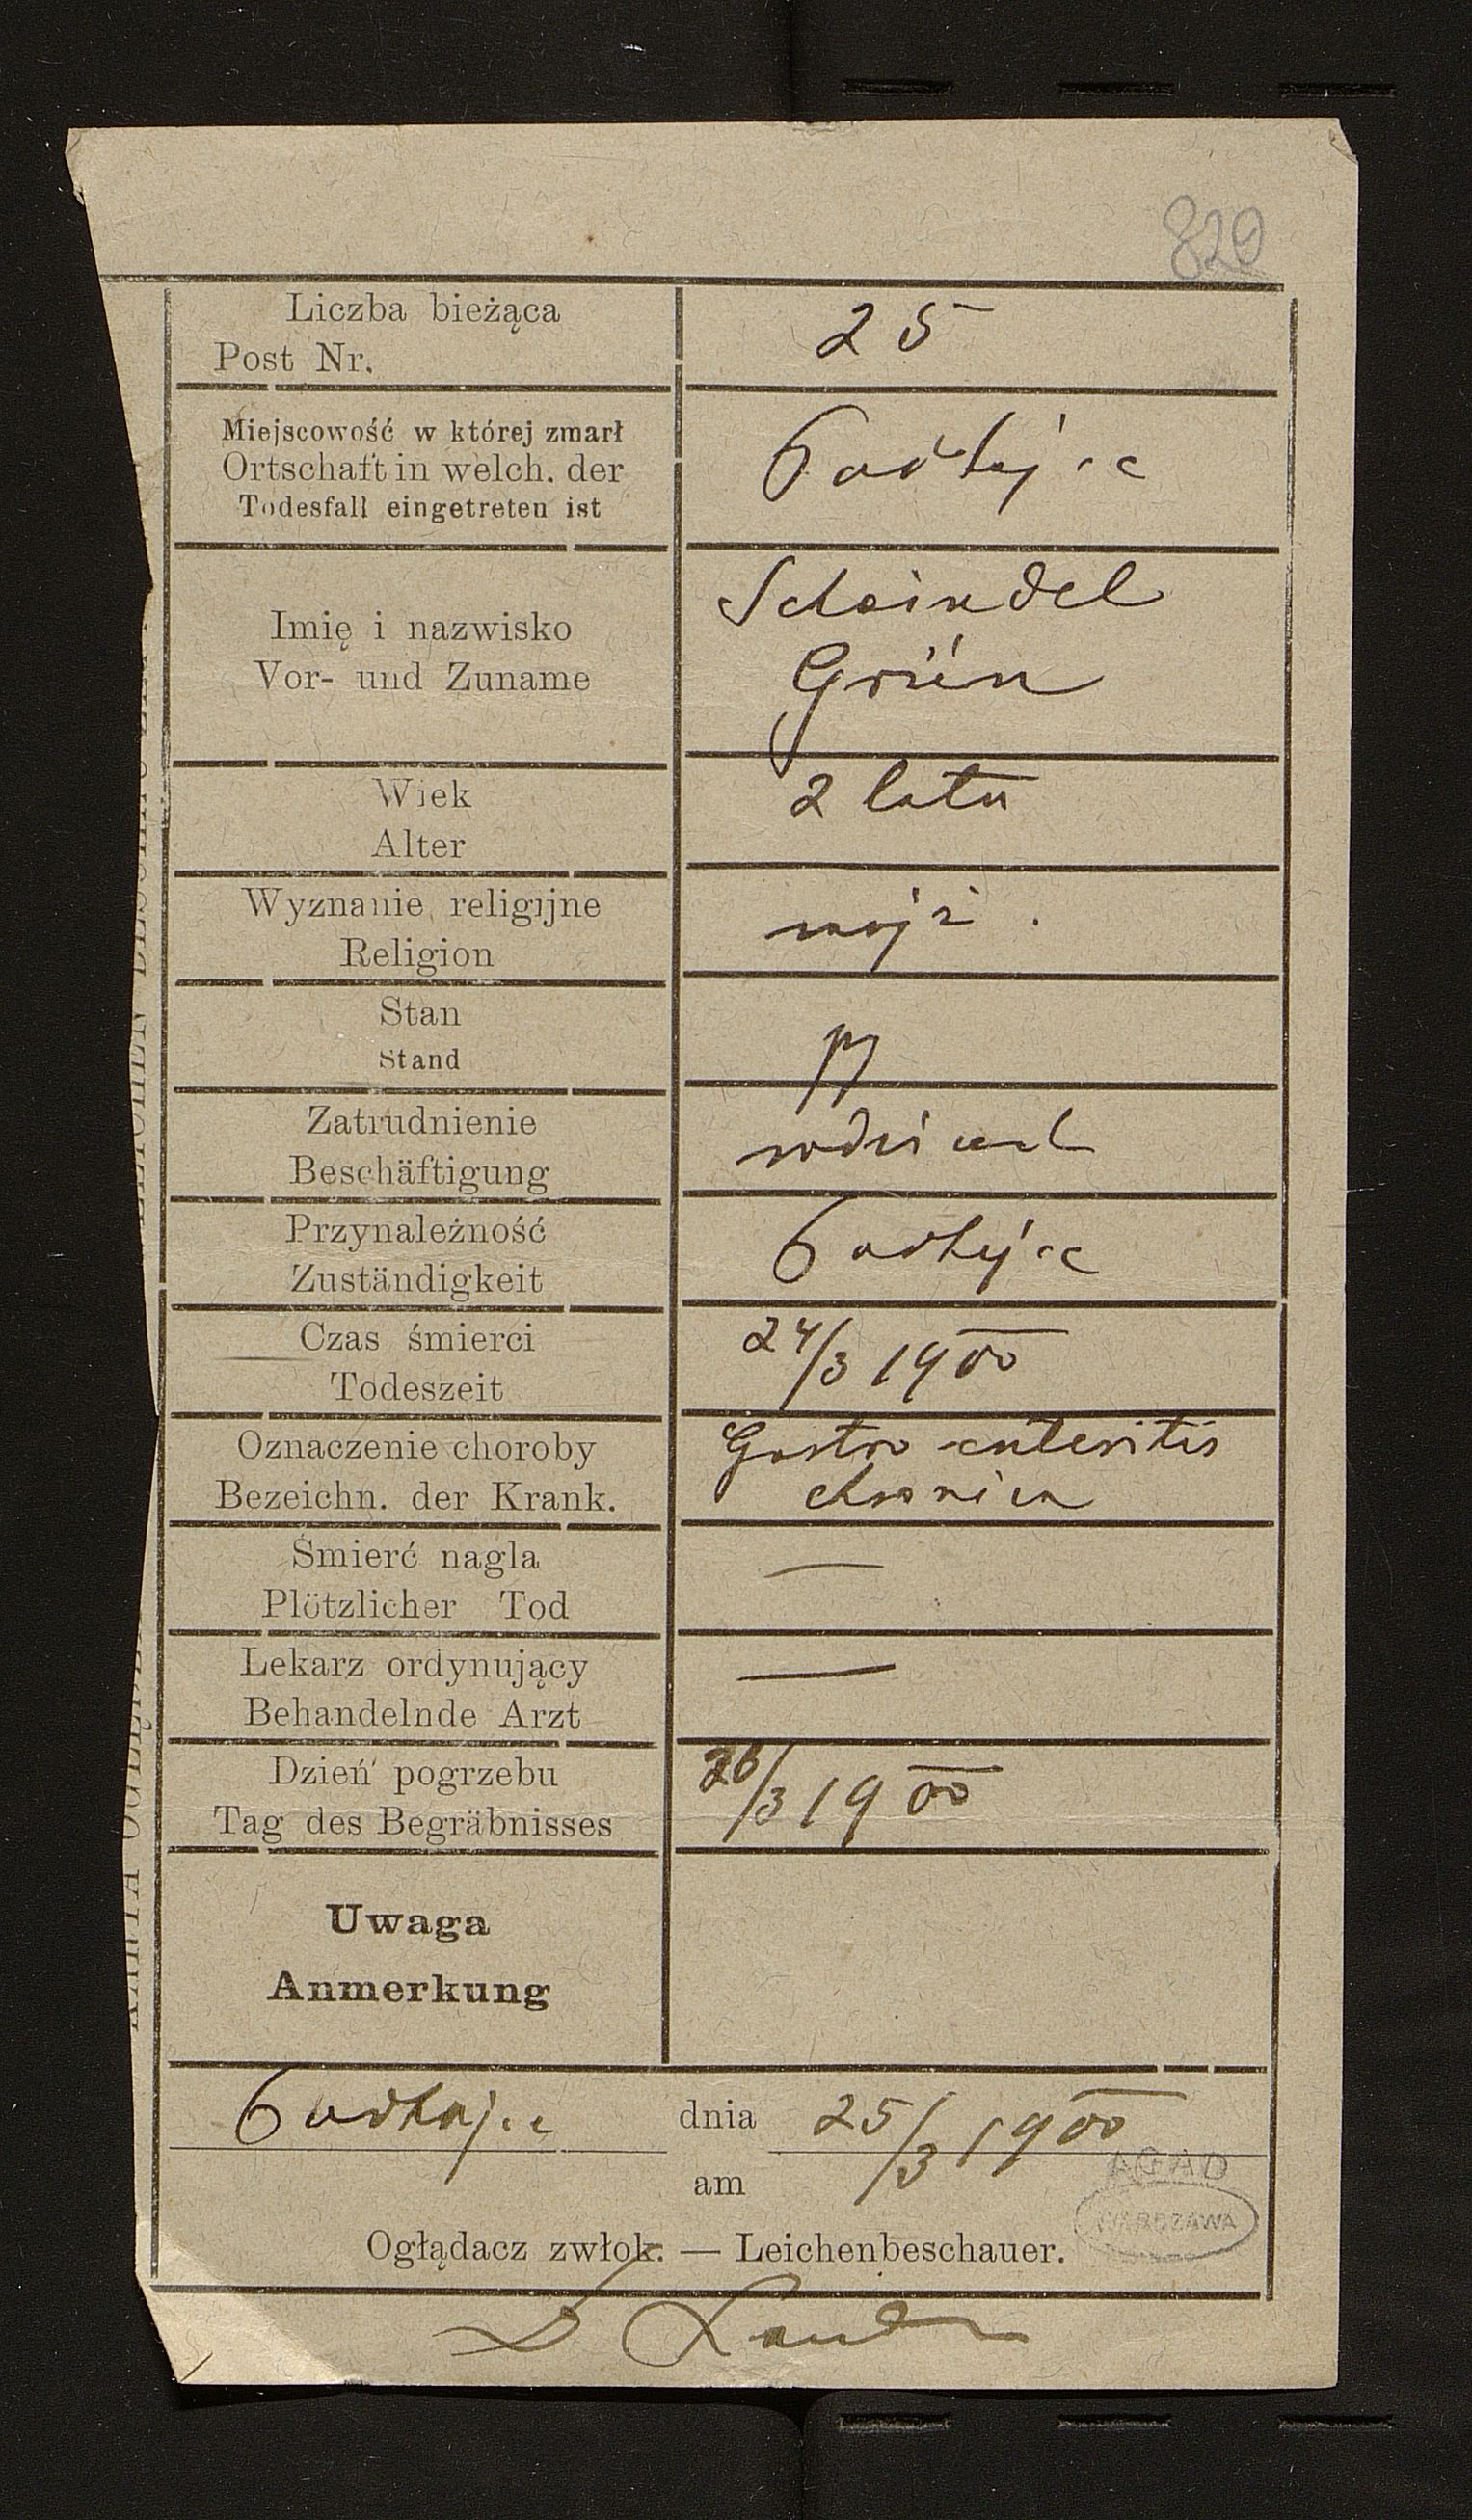 820
Liczba bieżąca
Post Nr.
25
Miejscowość w której zmarł
Ortschaft in welch. der
Todesfall eingetreten ist
Podhajce
Imię i nazwisko
Vor- und Zuname
Scheindel
Grün
Wiek
Alter
2 lata
Wyznanie religijne
Religion
mojż.
Stan
Stand
Zatrudnienie
Beschäftigung
Przynależność
Zuständigkeit
Podhajce
Czas śmierci
Todeszeit
24/3 1900
Oznaczenie choroby
Bezeichn. der Krank.
Gastro-enteritis
chronica
Śmierć nagla
Plötzlicher Tod
—
Lekarz ordynujący
Behandelnde Arzt
—
Dzień pogrzebu
Tag des Begräbnisses
26/3 1900
Uwaga
Anmerkung
Podhajce dnia 25/3 1900
am
AGAD
WARSZAWA
Oglądacz zwłok. — Leichenbeschauer.